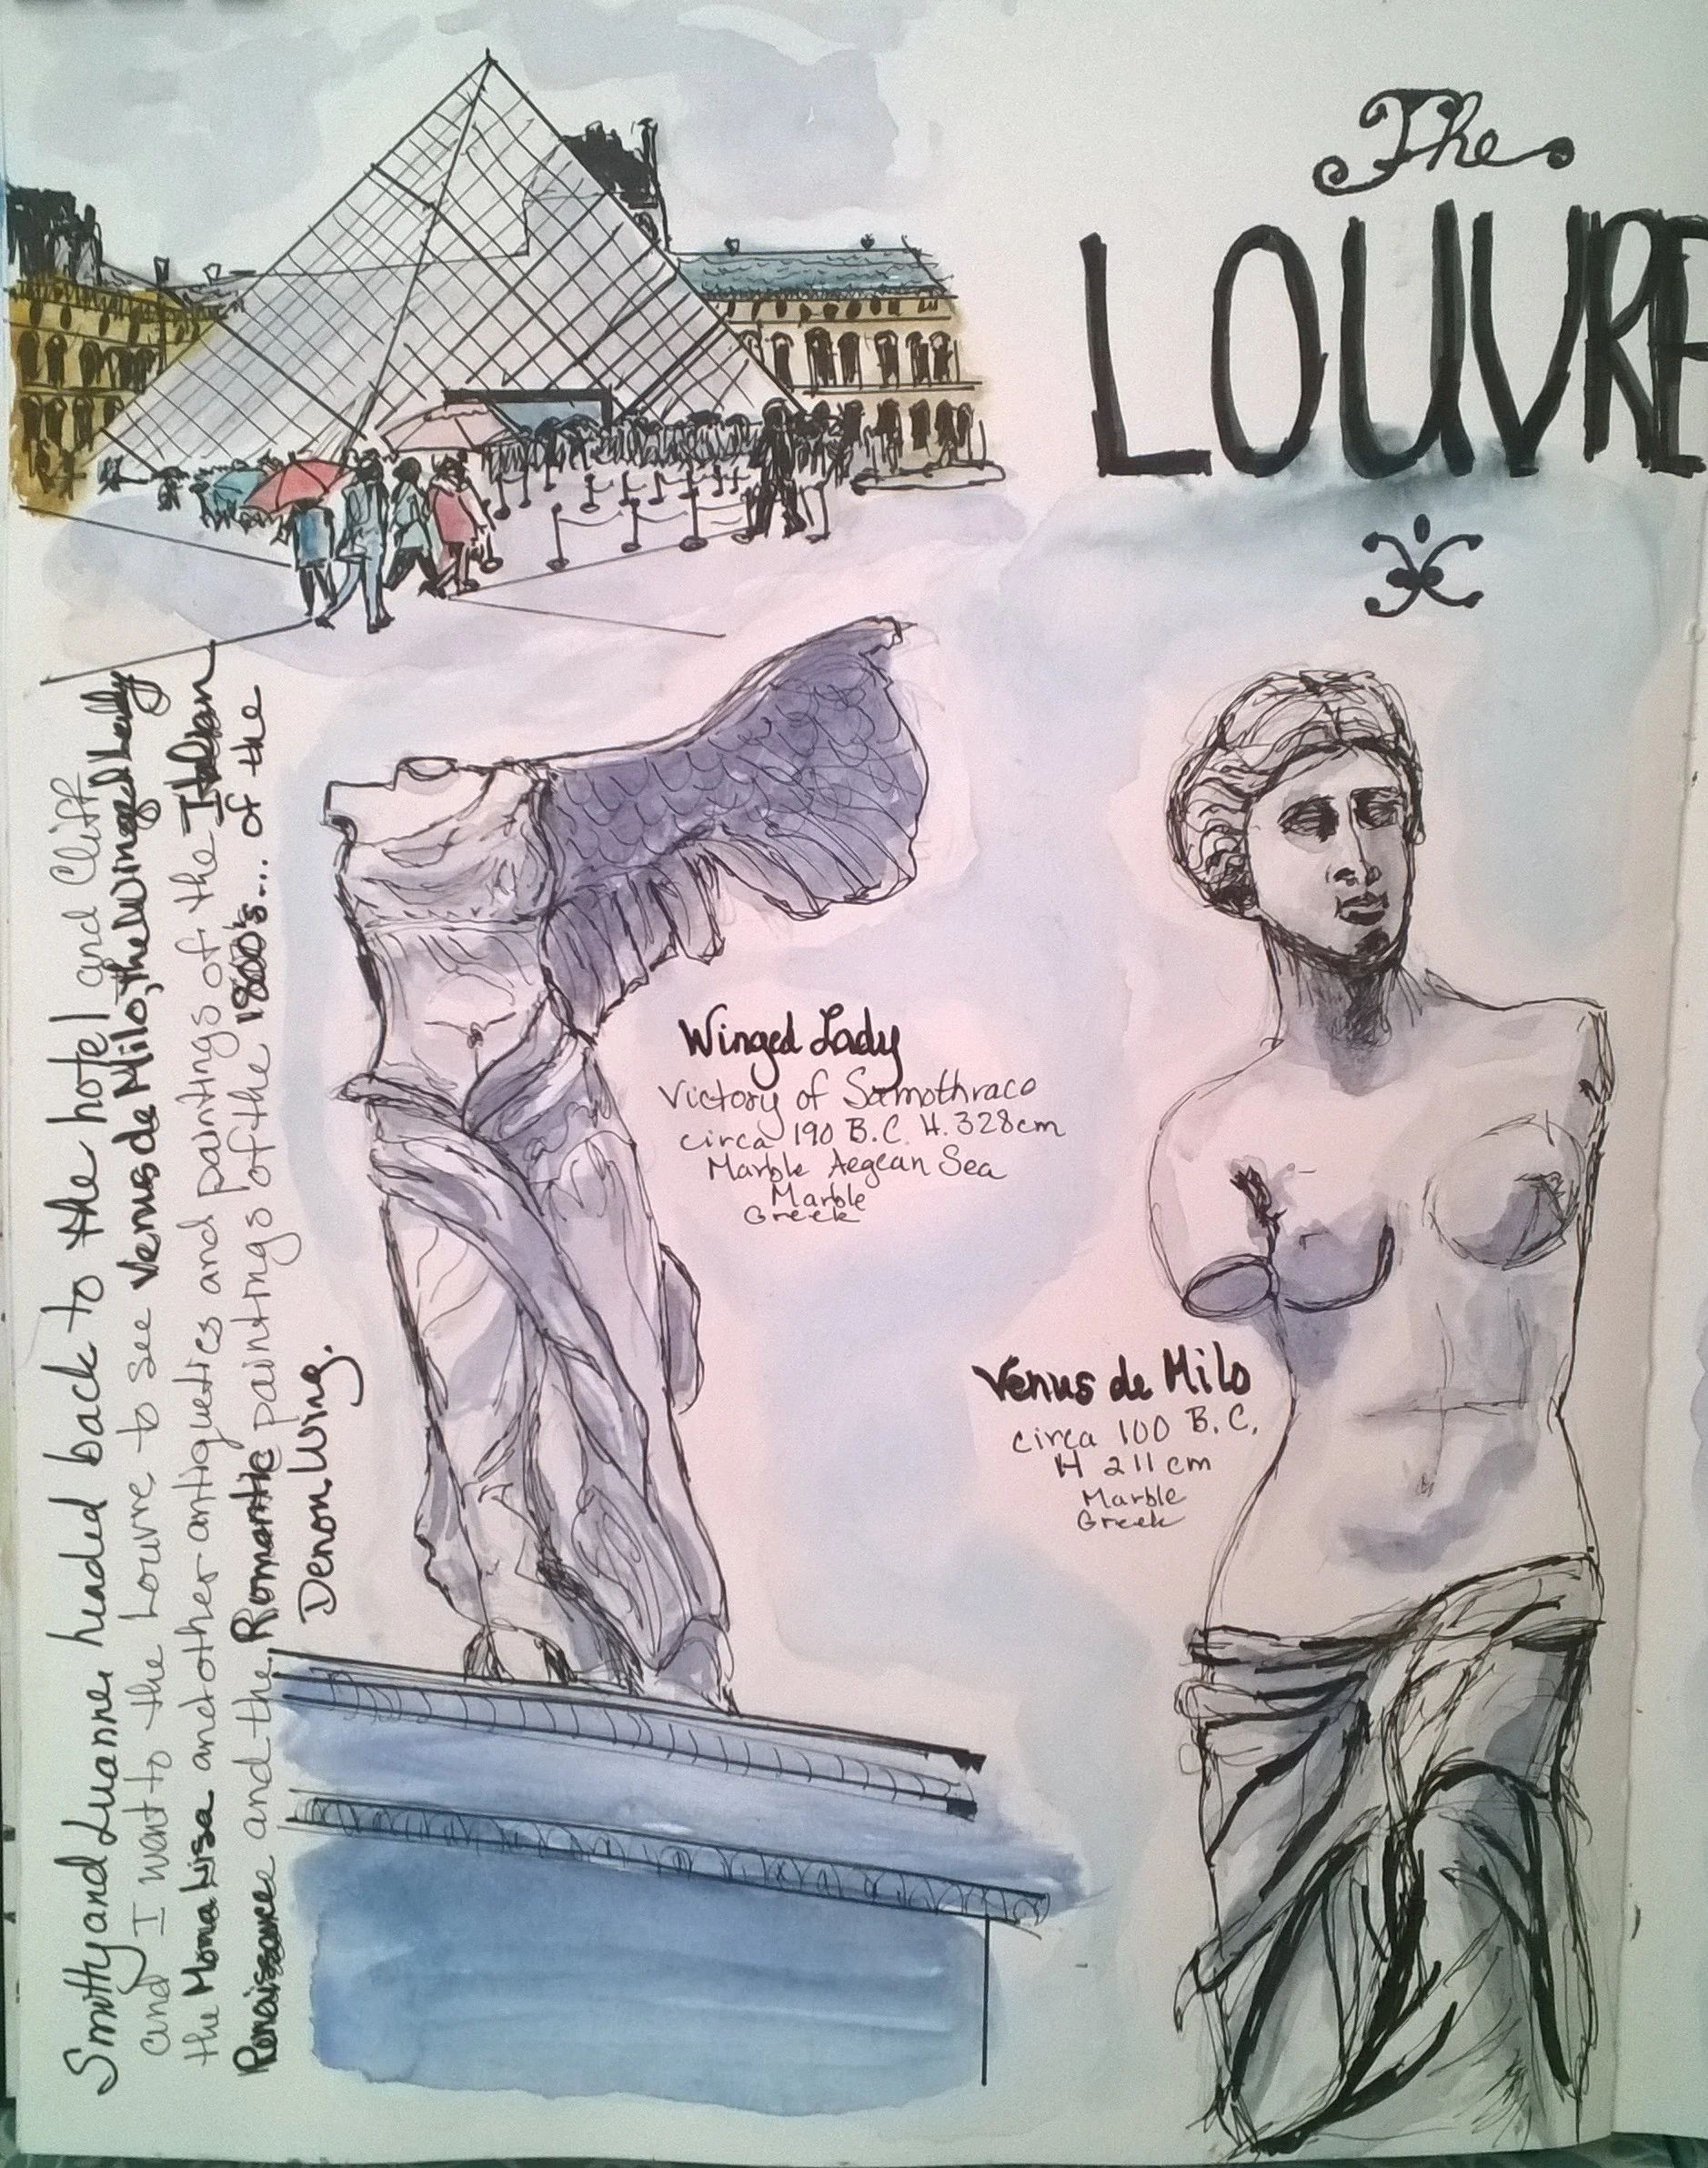 The
LOUVRE
Smitty and Luanne headed back to the hotel and Cliff
and I went to the Louvre to see Venus de Milo, the Winged Lady
the Mona Lisa and other antiqueties and paintings of the Italian
Renaissance and the Romantic paintings of the 1800's... of the
Denon Wing.
Winged Lady
Victory of Samothrace
circa 190 B.C. H. 328cm
Marble Aegean Sea
Marble
Greek
Venus de Milo
circa 100 B.C.
H 211 cm
Marble
Greek